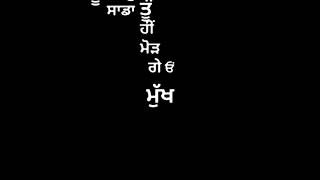 ਸਾਡਾ ਤੂੰ
ਹੀਂ
ਮੋੜ
ਗੇ ਓਂ
ਮੁੱਖ